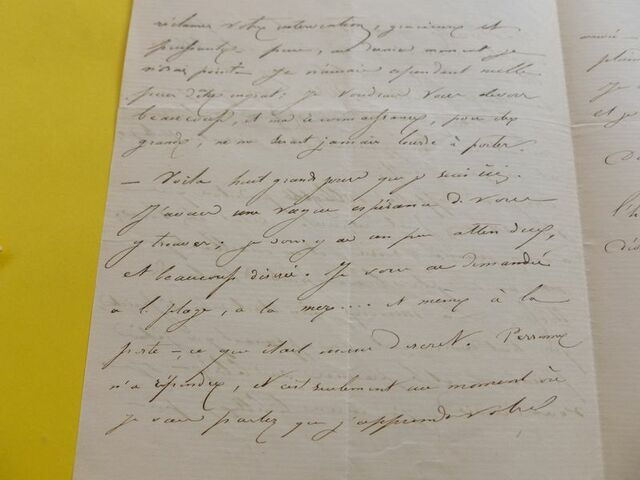 réclamer votre intervention, gracieuse et
puissante pour, au dernier moment je
n'oser point. Je n'aurais cependant nulle
peur d'être ingrat; Je voudrais vous devoir
beaucoup, et ma reconnaissance, pour être
grande, ne me serait jamais lourde à porter.
— Voilà huit grands jours que je suis ici.
J'avais une vague espérance de vous
y trouver; je vous y ai un peu attendue,
et beaucoup désirée. Je vous ai demandée
à la plage, à la mer.... et même à la
poste —, ce qui était moins discret. Personne
n'a répondu, et c'est seulement au moment où
je vais partir que j'apprends votre
plein
Je
et je